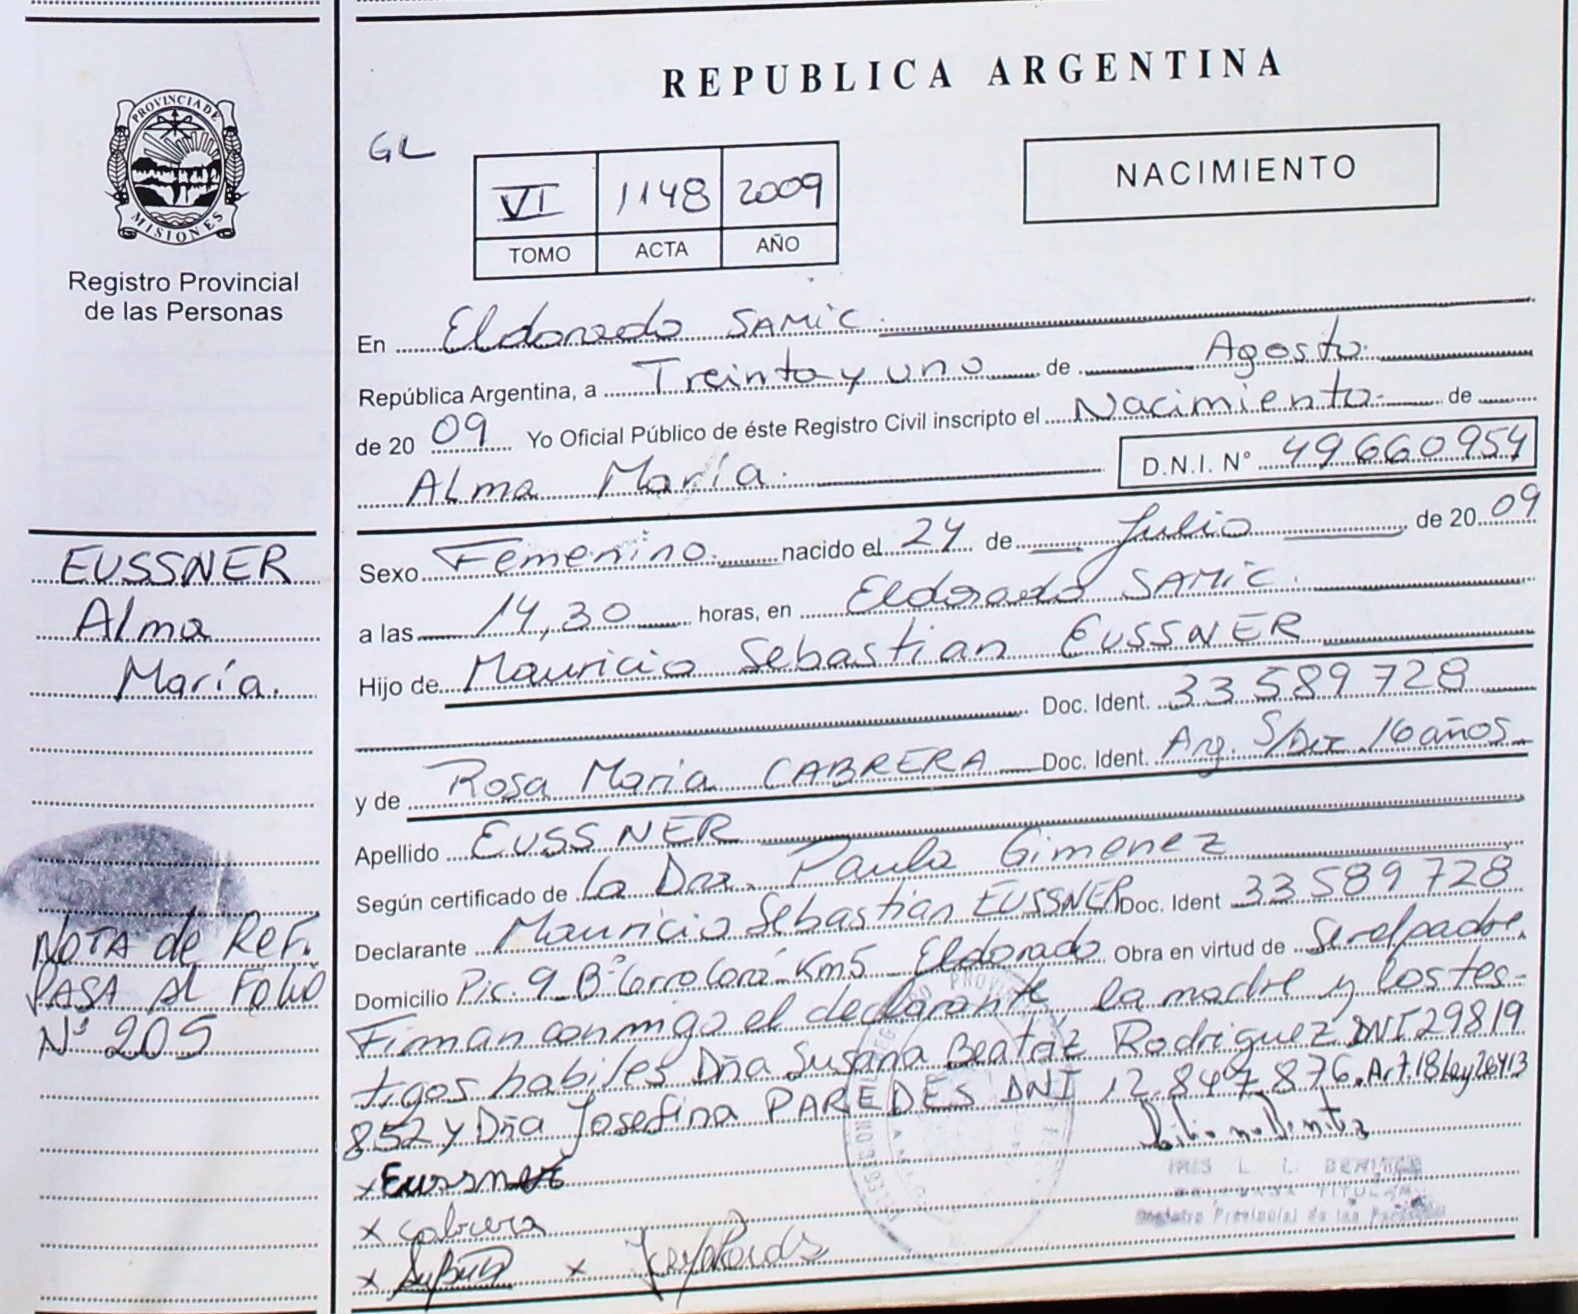 REPUBLICA ARGENTINA
PROVINCIA DE
MISIONES
Registro Provincial
de las Personas
GL
VI 1148 2009
TOMO ACTA AÑO
NACIMIENTO
En Eldorado SAMIC.
República Argentina, a Treinta y uno de Agosto.
de 20 09 Yo Oficial Público de éste Registro Civil inscripto el Nacimiento de
Alma María. D.N.I. N° 49660954
EUSSNER
Alma
María.
Sexo Femenino. nacido el 24 de Julio de 20 09
a las 14,30 horas, en Eldorado SAMIC.
Hijo de Mauricio Sebastian EUSSNER
Doc. Ident. 33589728
y de Rosa Maria CABRERA Doc. Ident. Arg. 16 años
Apellido EUSSNER
Según certificado de la Dra. Paula Gimenez
Declarante Mauricio Sebastian EUSSNER Doc. Ident 33589728
Domicilio Pic. 9 B° Cerro Corá Km5 Eldorado Obra en virtud de Ser el padre.
Firman conmigo el declarante la madre y los tes-
tigos habiles Dña Susana Beatriz Rodriguez DNI 29819
852 y Dña Josefina PAREDES DNI 12.847.876. Art. 18 Ley 26413
NOTA de REF.
PASA AL FOLIO
N° 205
x Eussner
x Cabrera
x x
IRIS L. L. BENITEZ
DELEGADA TITULAR
Registro Provincial de las Personas